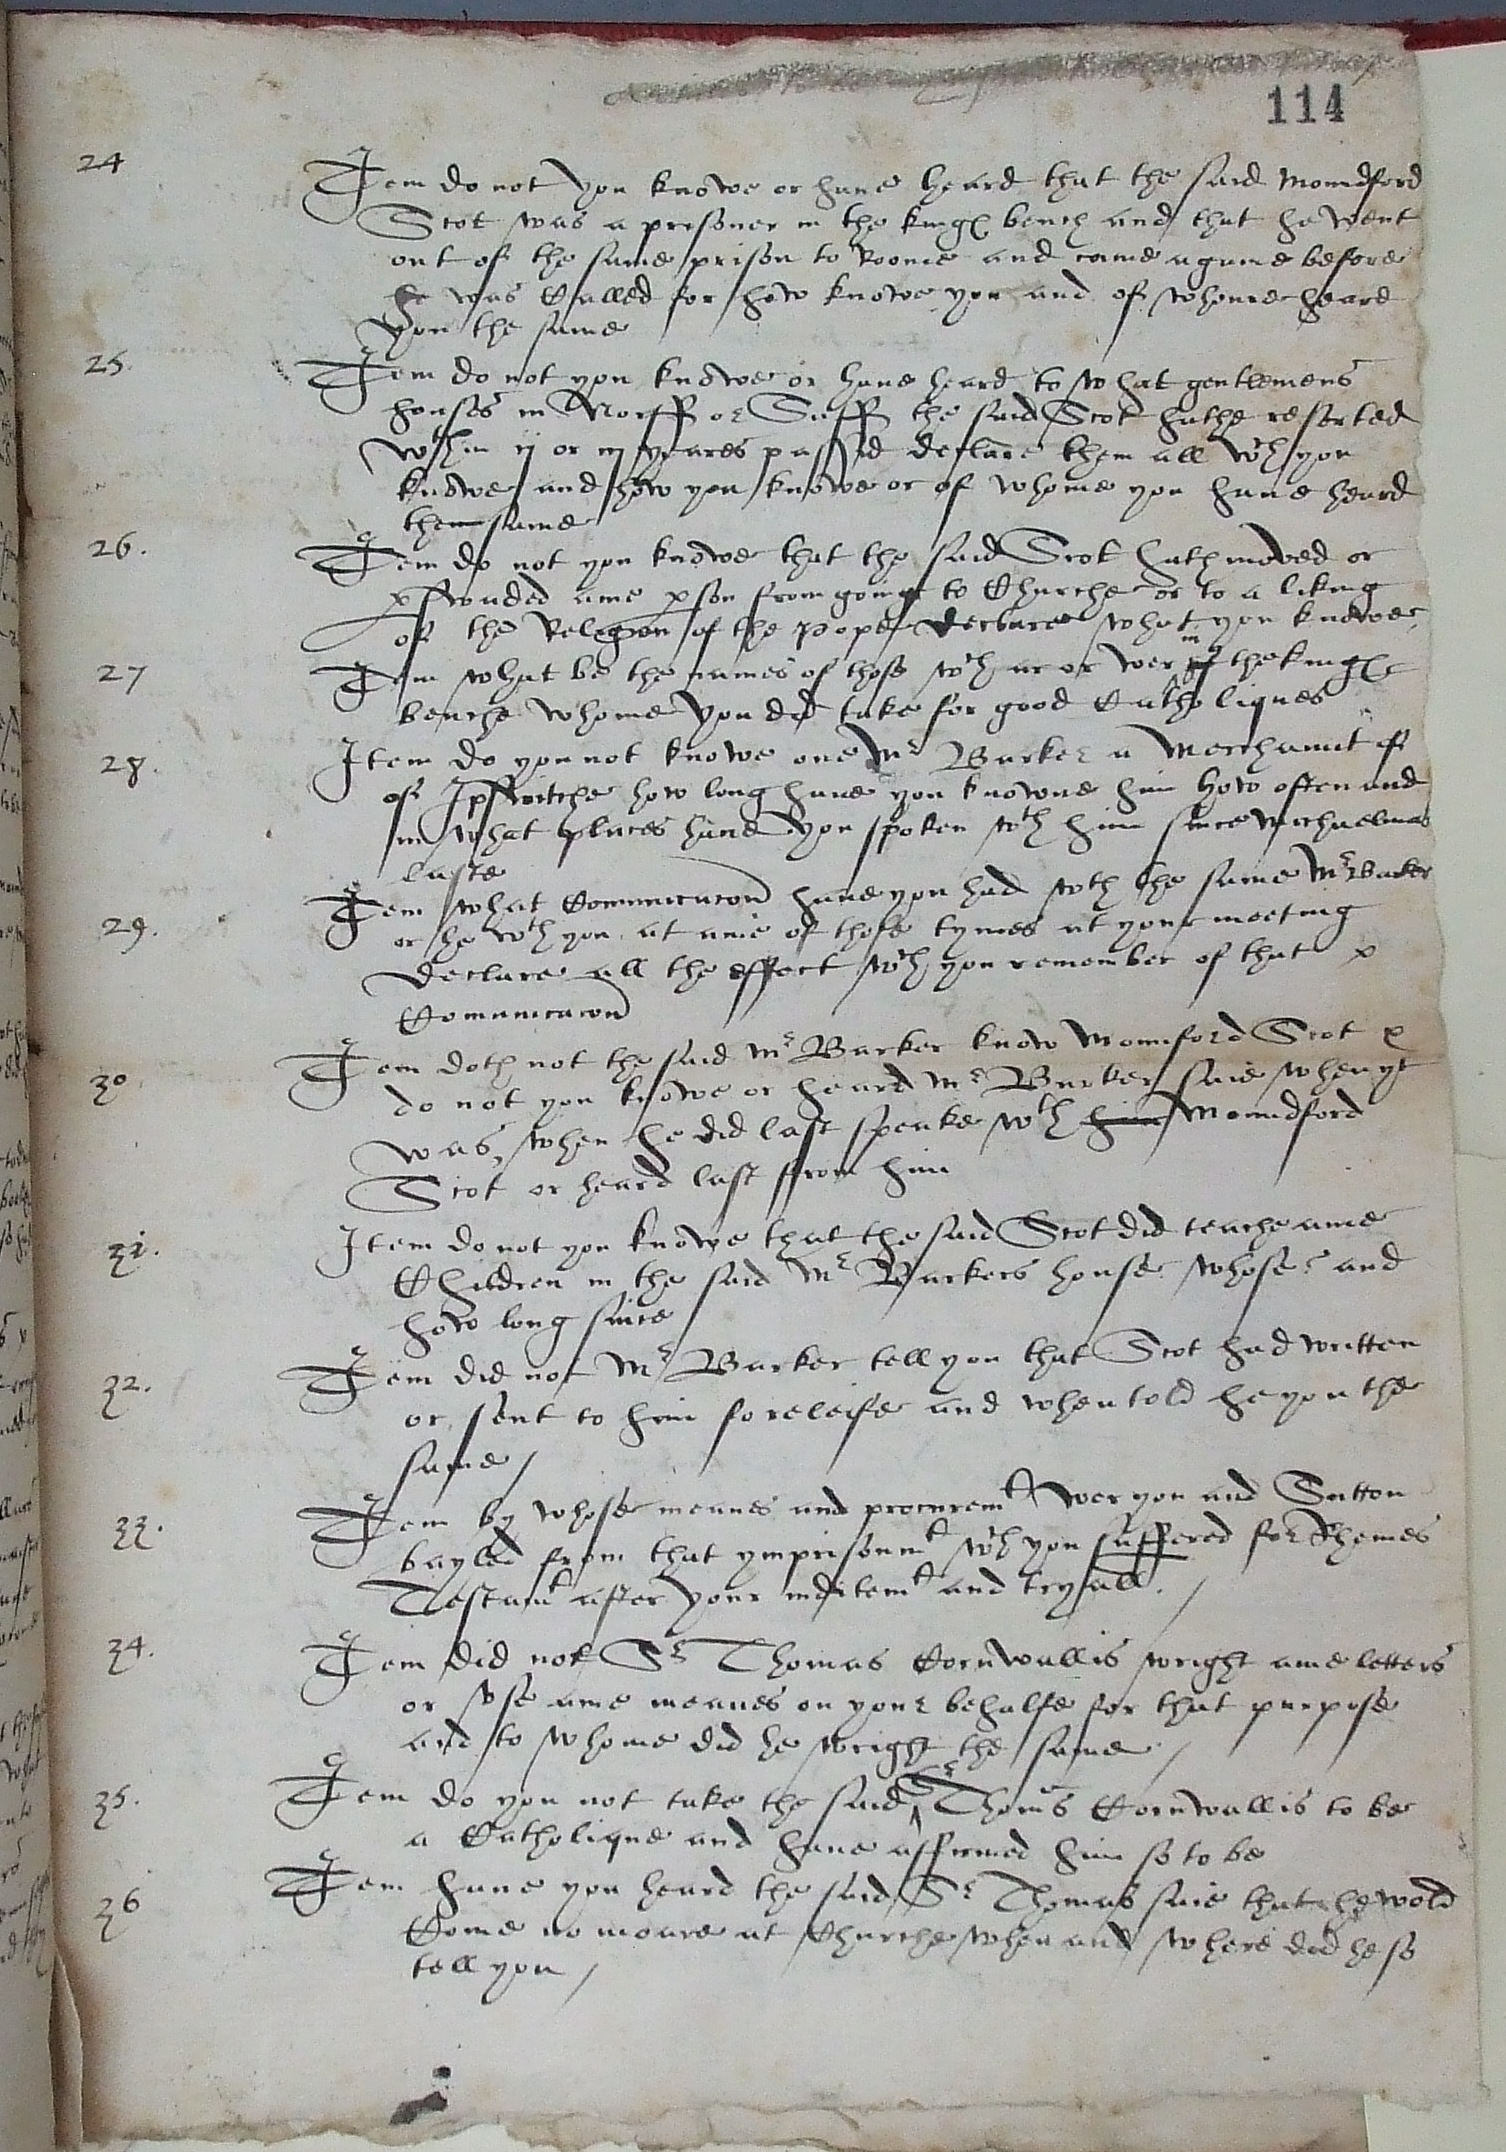 114
24 Item do not you knowe or haue heard that the said Moundford
Scot was a prisoner in the kinges bench and that he went
out of the same prison to Roome and came againe before
he was Called for how knowe you and of whome heard
you the same
25. Item do not you knowe or haue heard to what gentlemens
houses in Norff or Suff the said Scot hathe resorted
wthin ij or iij yeares passed declare them all wch you
knowe and how you knowe or of whome you haue heard
them same
26. Item do not you knowe that the said Scot hath moved or
pswaded anie pson from going to Churche or to a liking
of the Religion of the Pope declare what you knowe
27 Item what be the names of those wch ar or wer in of the kinges
benche whome you did take for good Catholiques
28. Item do you not knowe one Mr Barker a Merchaunt of
of Ipswitche how long haue you knowne him how often and
in what places haue you spoken wth him since Michaelmas
laste
29. Item what Comunicacon haue you had wth the same Mr Barker
or he wth you at anie of those tymes at your meeting
declare all the effect wch you remember of that
Comunicacon
30 Item doth not the said Mr Barker know Mounford Scot
do not you knowe or heard Mr Barker saie when yt
was, when he did last speake wth him Moundford
Scot or heard last from him
31. Item do not you knowe that the said Scot did teache anie
Children in the said Mr Barkers house whose and
how long since
32. Item did not Mr Barker tell you that Scot had written
or sent to him fo releife and when told he you the
same /
33. Item by whose meanes and procuremt wer you and Sutton
bayled from that ymprisonmt wch you suffered for Rhemes
Testamt after your inditemt and tryall. /
34. Item did not Sr Thomas Cornwallis wright anie letters
or vse anie meanes on your behalfe for that purpose
and to whome did he wright the same /
35. Item do you not take the said Sr Thoms Cornwallis to be
a Catholique and haue affirmed him so to be
36 Item haue you heard the said Sr Thomas saie that he wold
Come no moare at Churche when and where did he so
tell you /